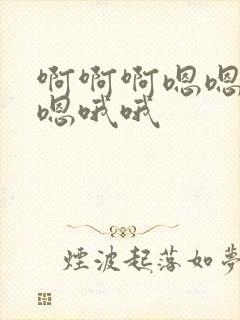 啊啊啊嗯嗯
嗯哦哦
煙波起落如夢